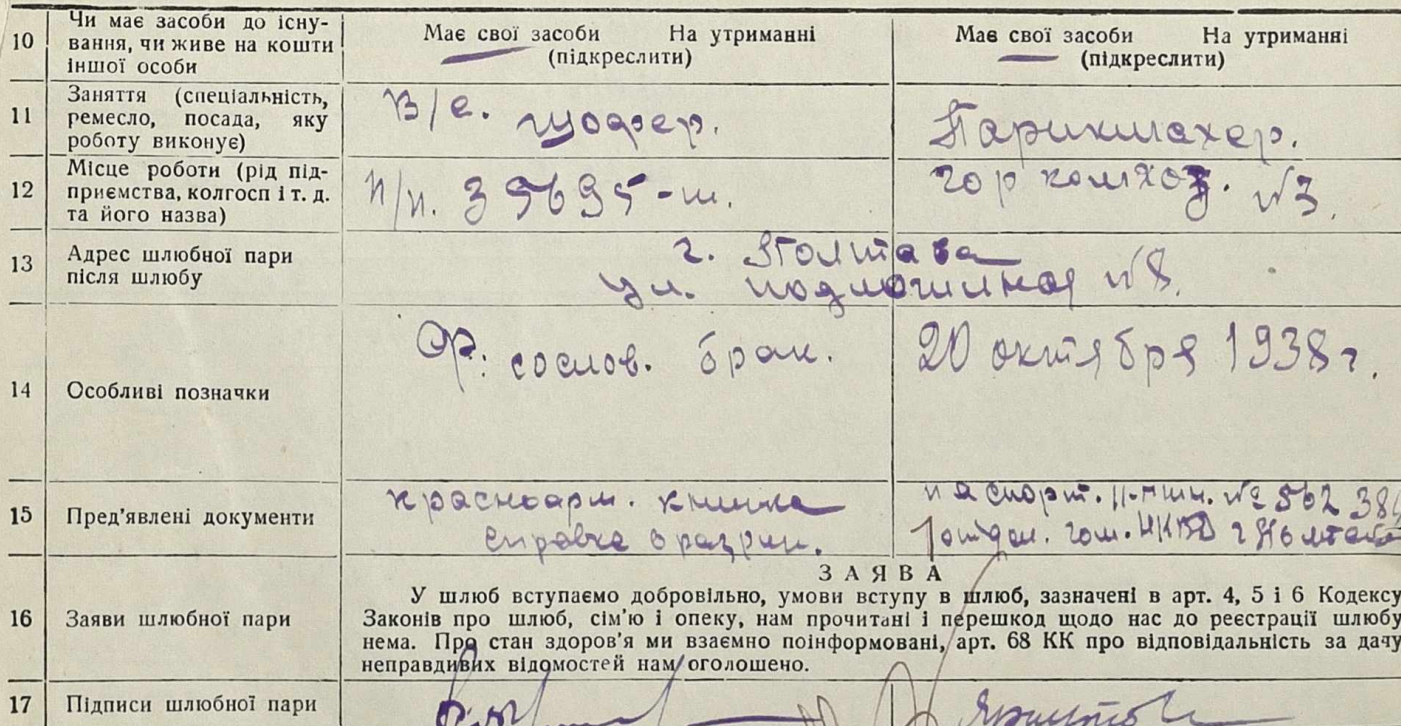 10 Чи має засоби до існу-
вання, чи живе на кошти
іншої особи
Має свої засоби На утриманні
(підкреслити)
Має свої засоби На утриманні
(підкреслити)
11 Заняття (спеціальність,
ремесло, посада, яку
роботу виконує)
В/с. шофер.
Парикмахер.
12 Місце роботи (рід під-
приємства, колгосп і т. д.
та його назва)
п/п. 35695-ш.
гор комхоз. №3.
13 Адрес шлюбної пари
після шлюбу
г. Полтава
ул. №8.
14 Особливі позначки
брак. 20 октября 1938 г.
15 Пред'явлені документи
красноарм. книжка
справка о разреш.
паспорт. № 562 38
1 отдел. НКВД г Полтава
ЗАЯВА
16 Заяви шлюбної пари
У шлюб вступаємо добровільно, умови вступу в шлюб, зазначені в арт. 4, 5 і 6 Кодексу
Законів про шлюб, сім'ю і опеку, нам прочитані і перешкод щодо нас до реєстрації шлюбу
нема. Про стан здоров'я ми взаємно поінформовані, арт. 68 КК про відповідальність за дачу
неправдивих відомостей нам оголошено.
17 Підписи шлюбної пари